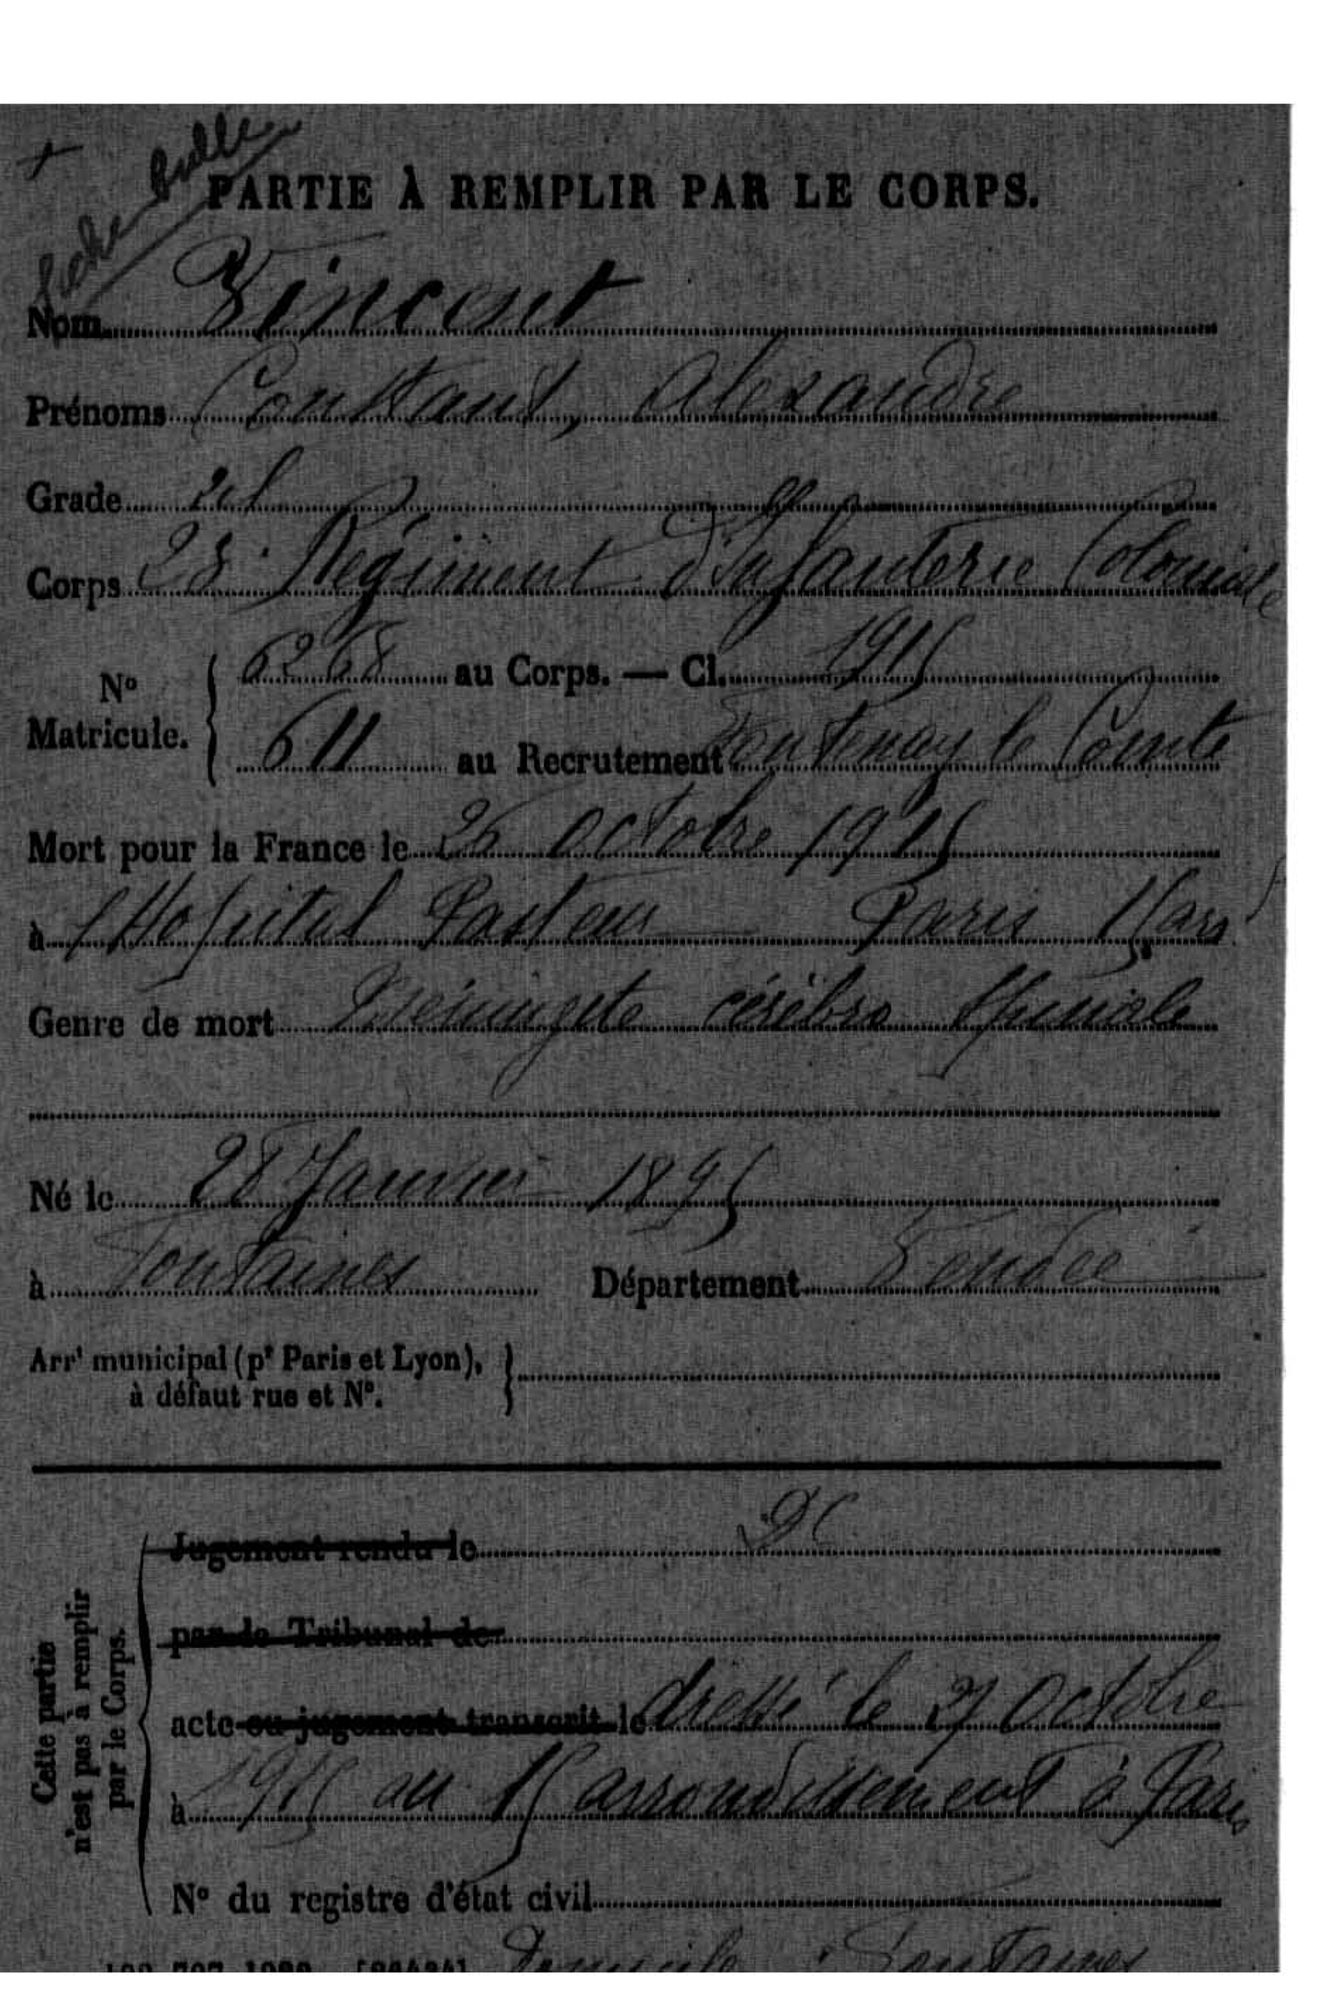 + fiche bulle
PARTIE À REMPLIR PAR LE CORPS.
Nom Vincent
Prénoms Constant, Alexandre
Grade 2cl
Corps 23e Régiment d'Infanterie Coloniale
No Matricule. { 6268 au Corps. — Cl. 1915
611 au Recrutement Fontenay le Comte
Mort pour la France le 26 Octobre 1915
à l'Hôpital Pasteur Paris 15 arrt
Genre de mort Méningite cérébro spinale
Né le 28 Janvier 1895
à Fontaines Département Vendée
Arrt municipal (pr Paris et Lyon), à défaut rue et No. }
Cette partie n'est pas à remplir par le Corps.
Jugement rendu le DC
par le Tribunal de
acte ou jugement transcrit le dressé le 27 Octobre
à 1915 au 15 arrondissement à Paris
No du registre d'état civil
Domicile : Fontaines